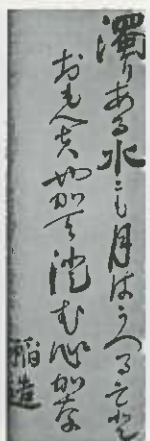 濁りある水にも月はうつるぞと
おもへばやがて澄む心かな
稲造